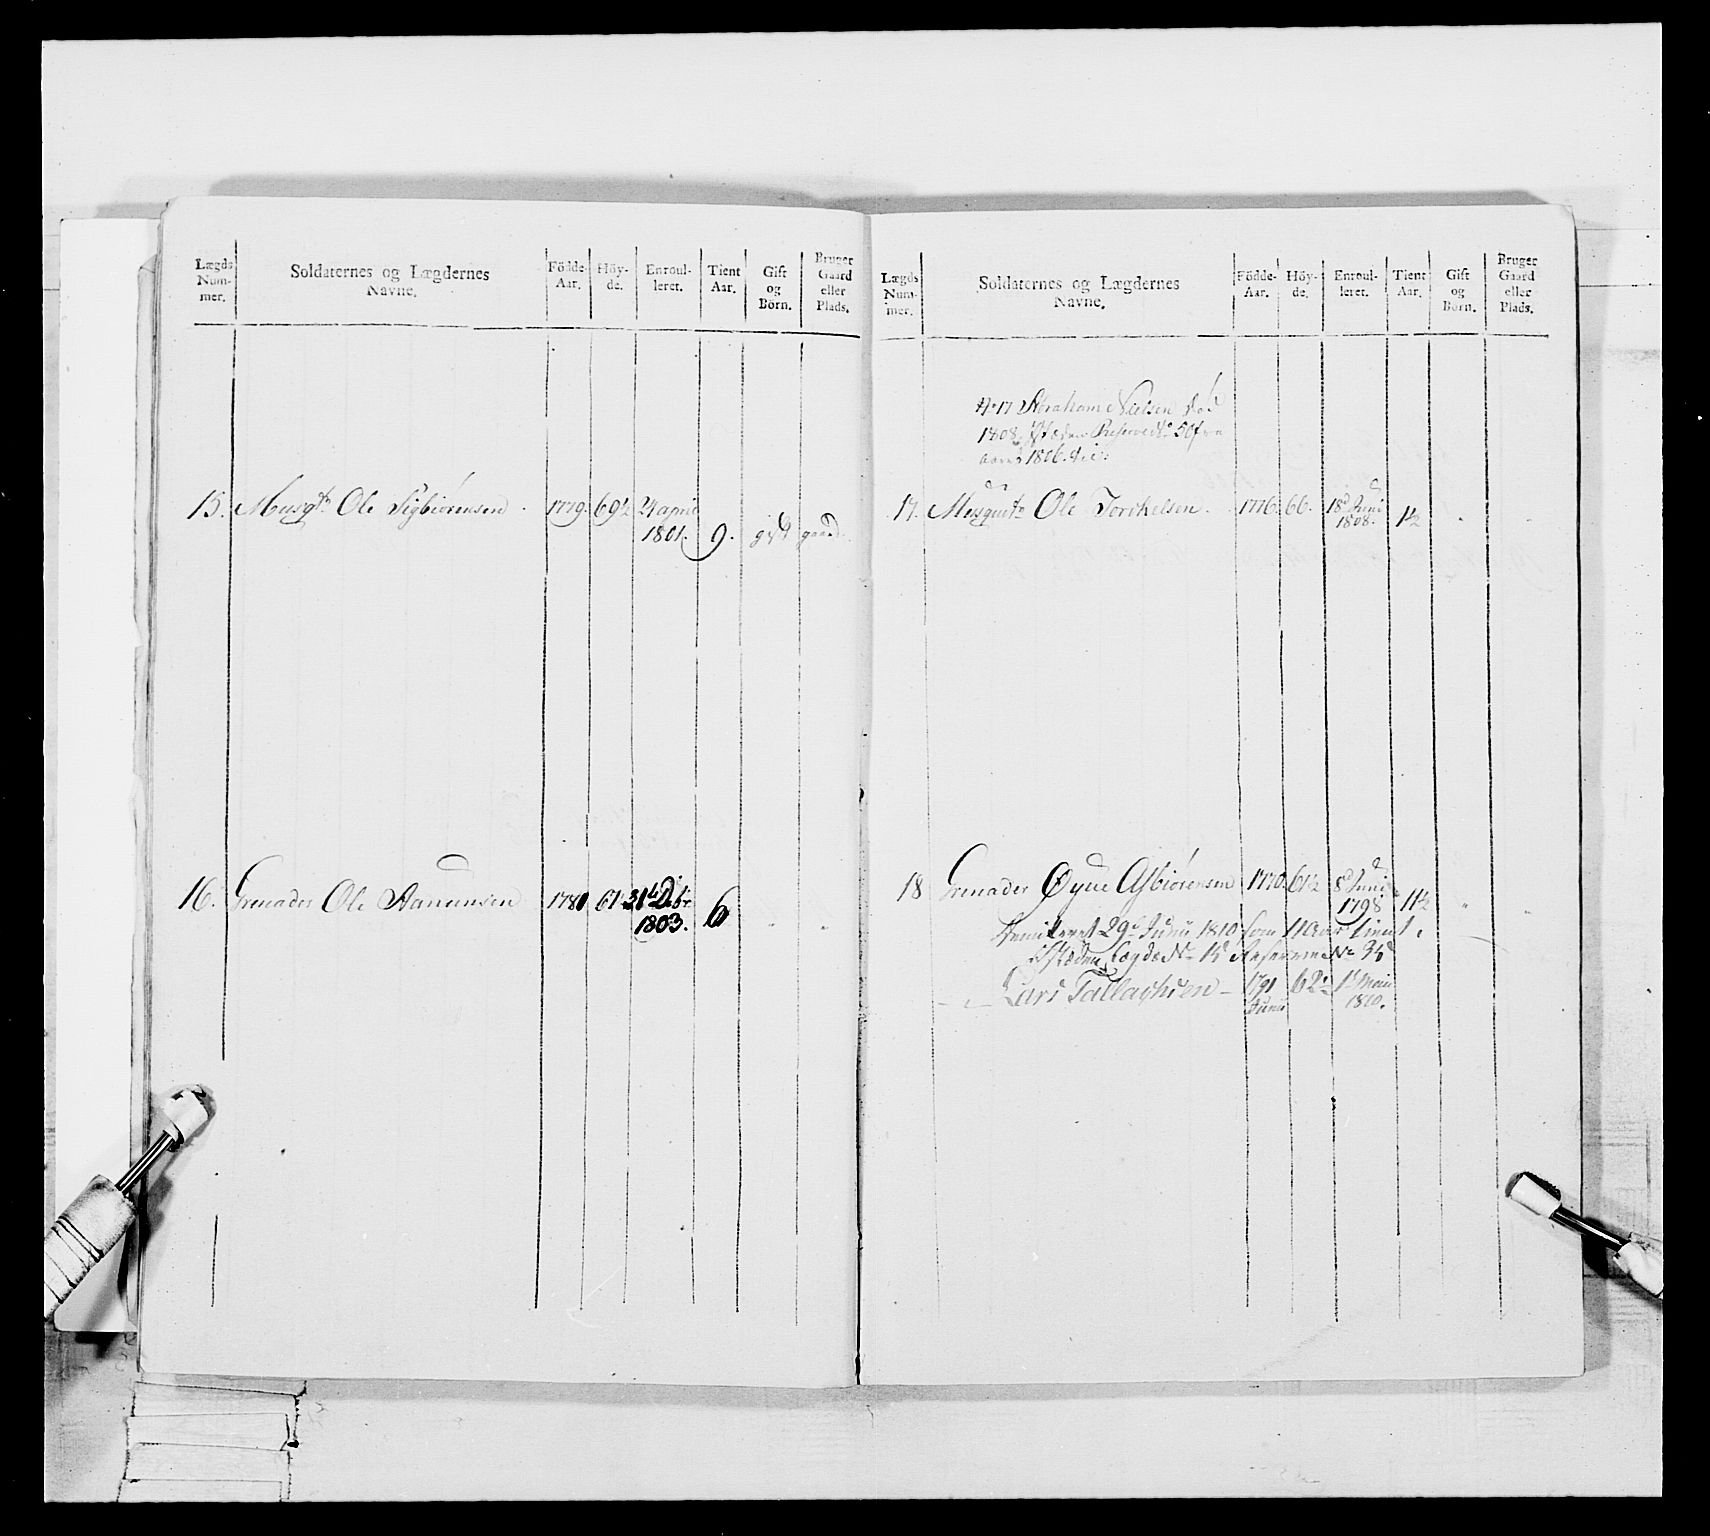 Lægds Num- mer.
Soldaternes og Lægdernes Navne.
Födde- Aar.
Höy- de.
Enroul- leret.
Tient Aar.
Gift og Börn.
Bruger Gaard eller Plads.
15. Musqt. Ole Sigbiörensen 1779. 69½ 24 april
1801. 9. gift gaard
16. Grenader Ole Aanunsen 1780 61 31te Debr.
1803. 6 " "
Lægds Num- mer.
Soldaternes og Lægdernes Navne.
Födde- Aar.
Höy- de.
Enroul- leret.
Tient Aar.
Gift og Börn.
Bruger Gaard eller Plads.
No 17 Abraham Nielsen död
1808. Isteden Reserved 50
1806.
17. Musquet Ole Torkelsen. 1776. 66. 18d Juni
1808. 1½ " "
18 Grenader Öyue Asbiörensen 1770. 61½ 8d Juni
1798 11½ " "
Demitteret 29d Junii 1810 som 11 aar tient.
Isteden Lægds No 18 No 34
Lars Tallachsen – 1791 62½ 1t Maii
Junii 1810.